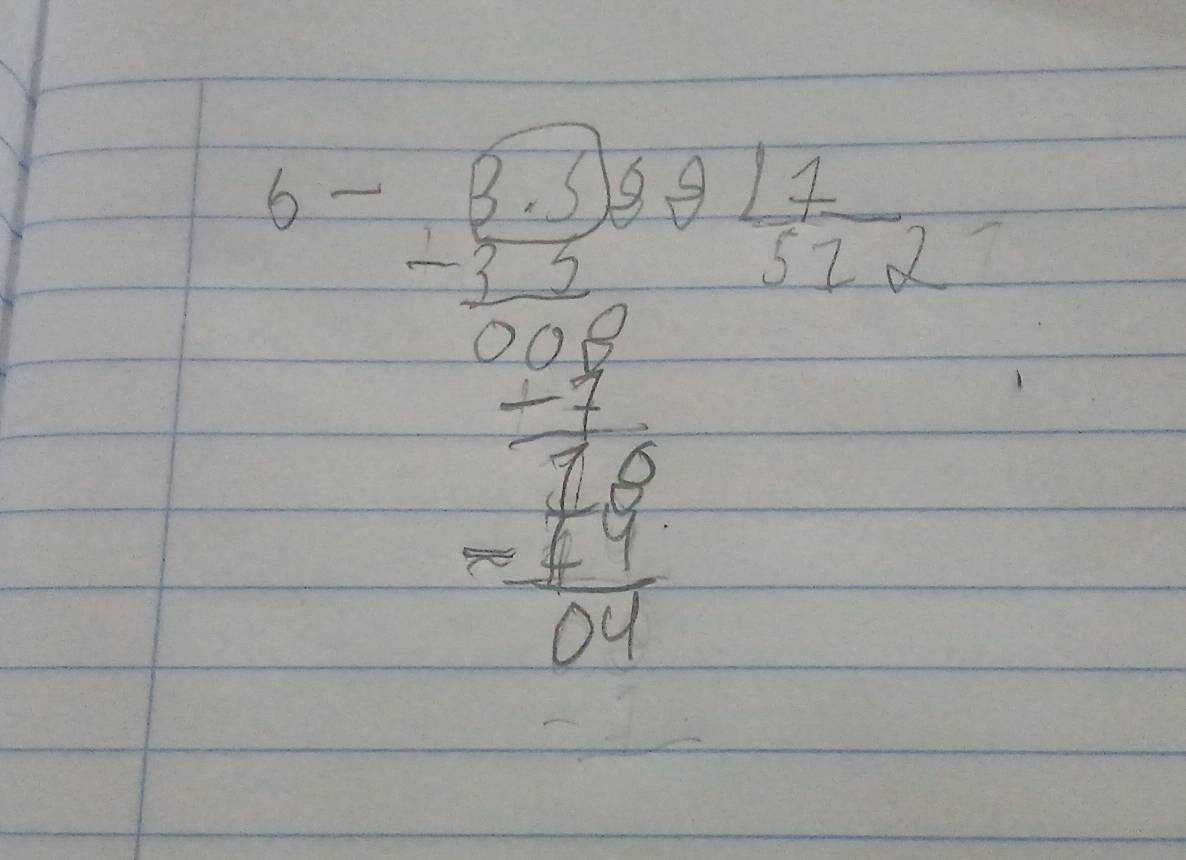 6 - 3.588 7
-35 512
008
-7
18
-14
04